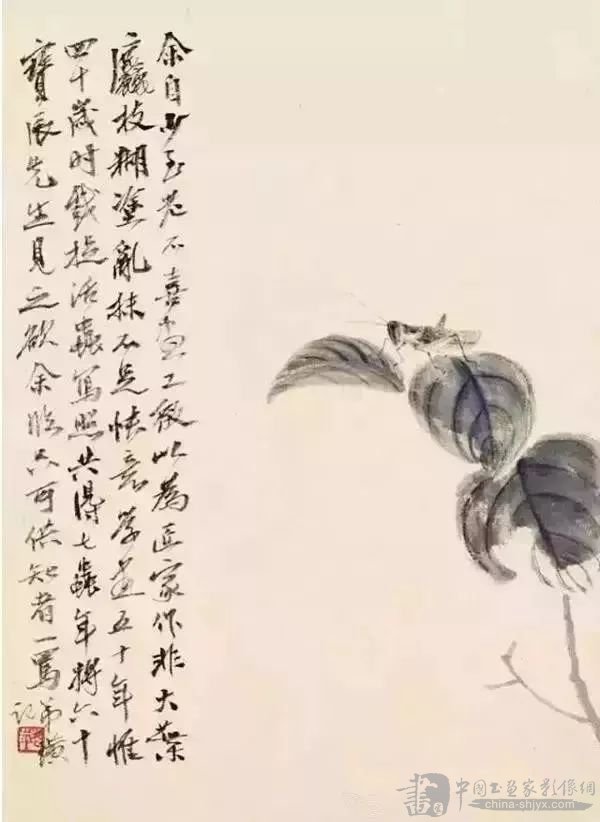 余自少至老不喜畫工緻以為匠家作非大葉
麤枝糊塗亂抹不足快意學畫五十年惟
四十歲時戲捉活蟲寫照共得七蟲年將六十
寶辰先生見之欲余臨只可供知者一罵弟璜
記
書
中国书画家影像網
china-shjyx.com